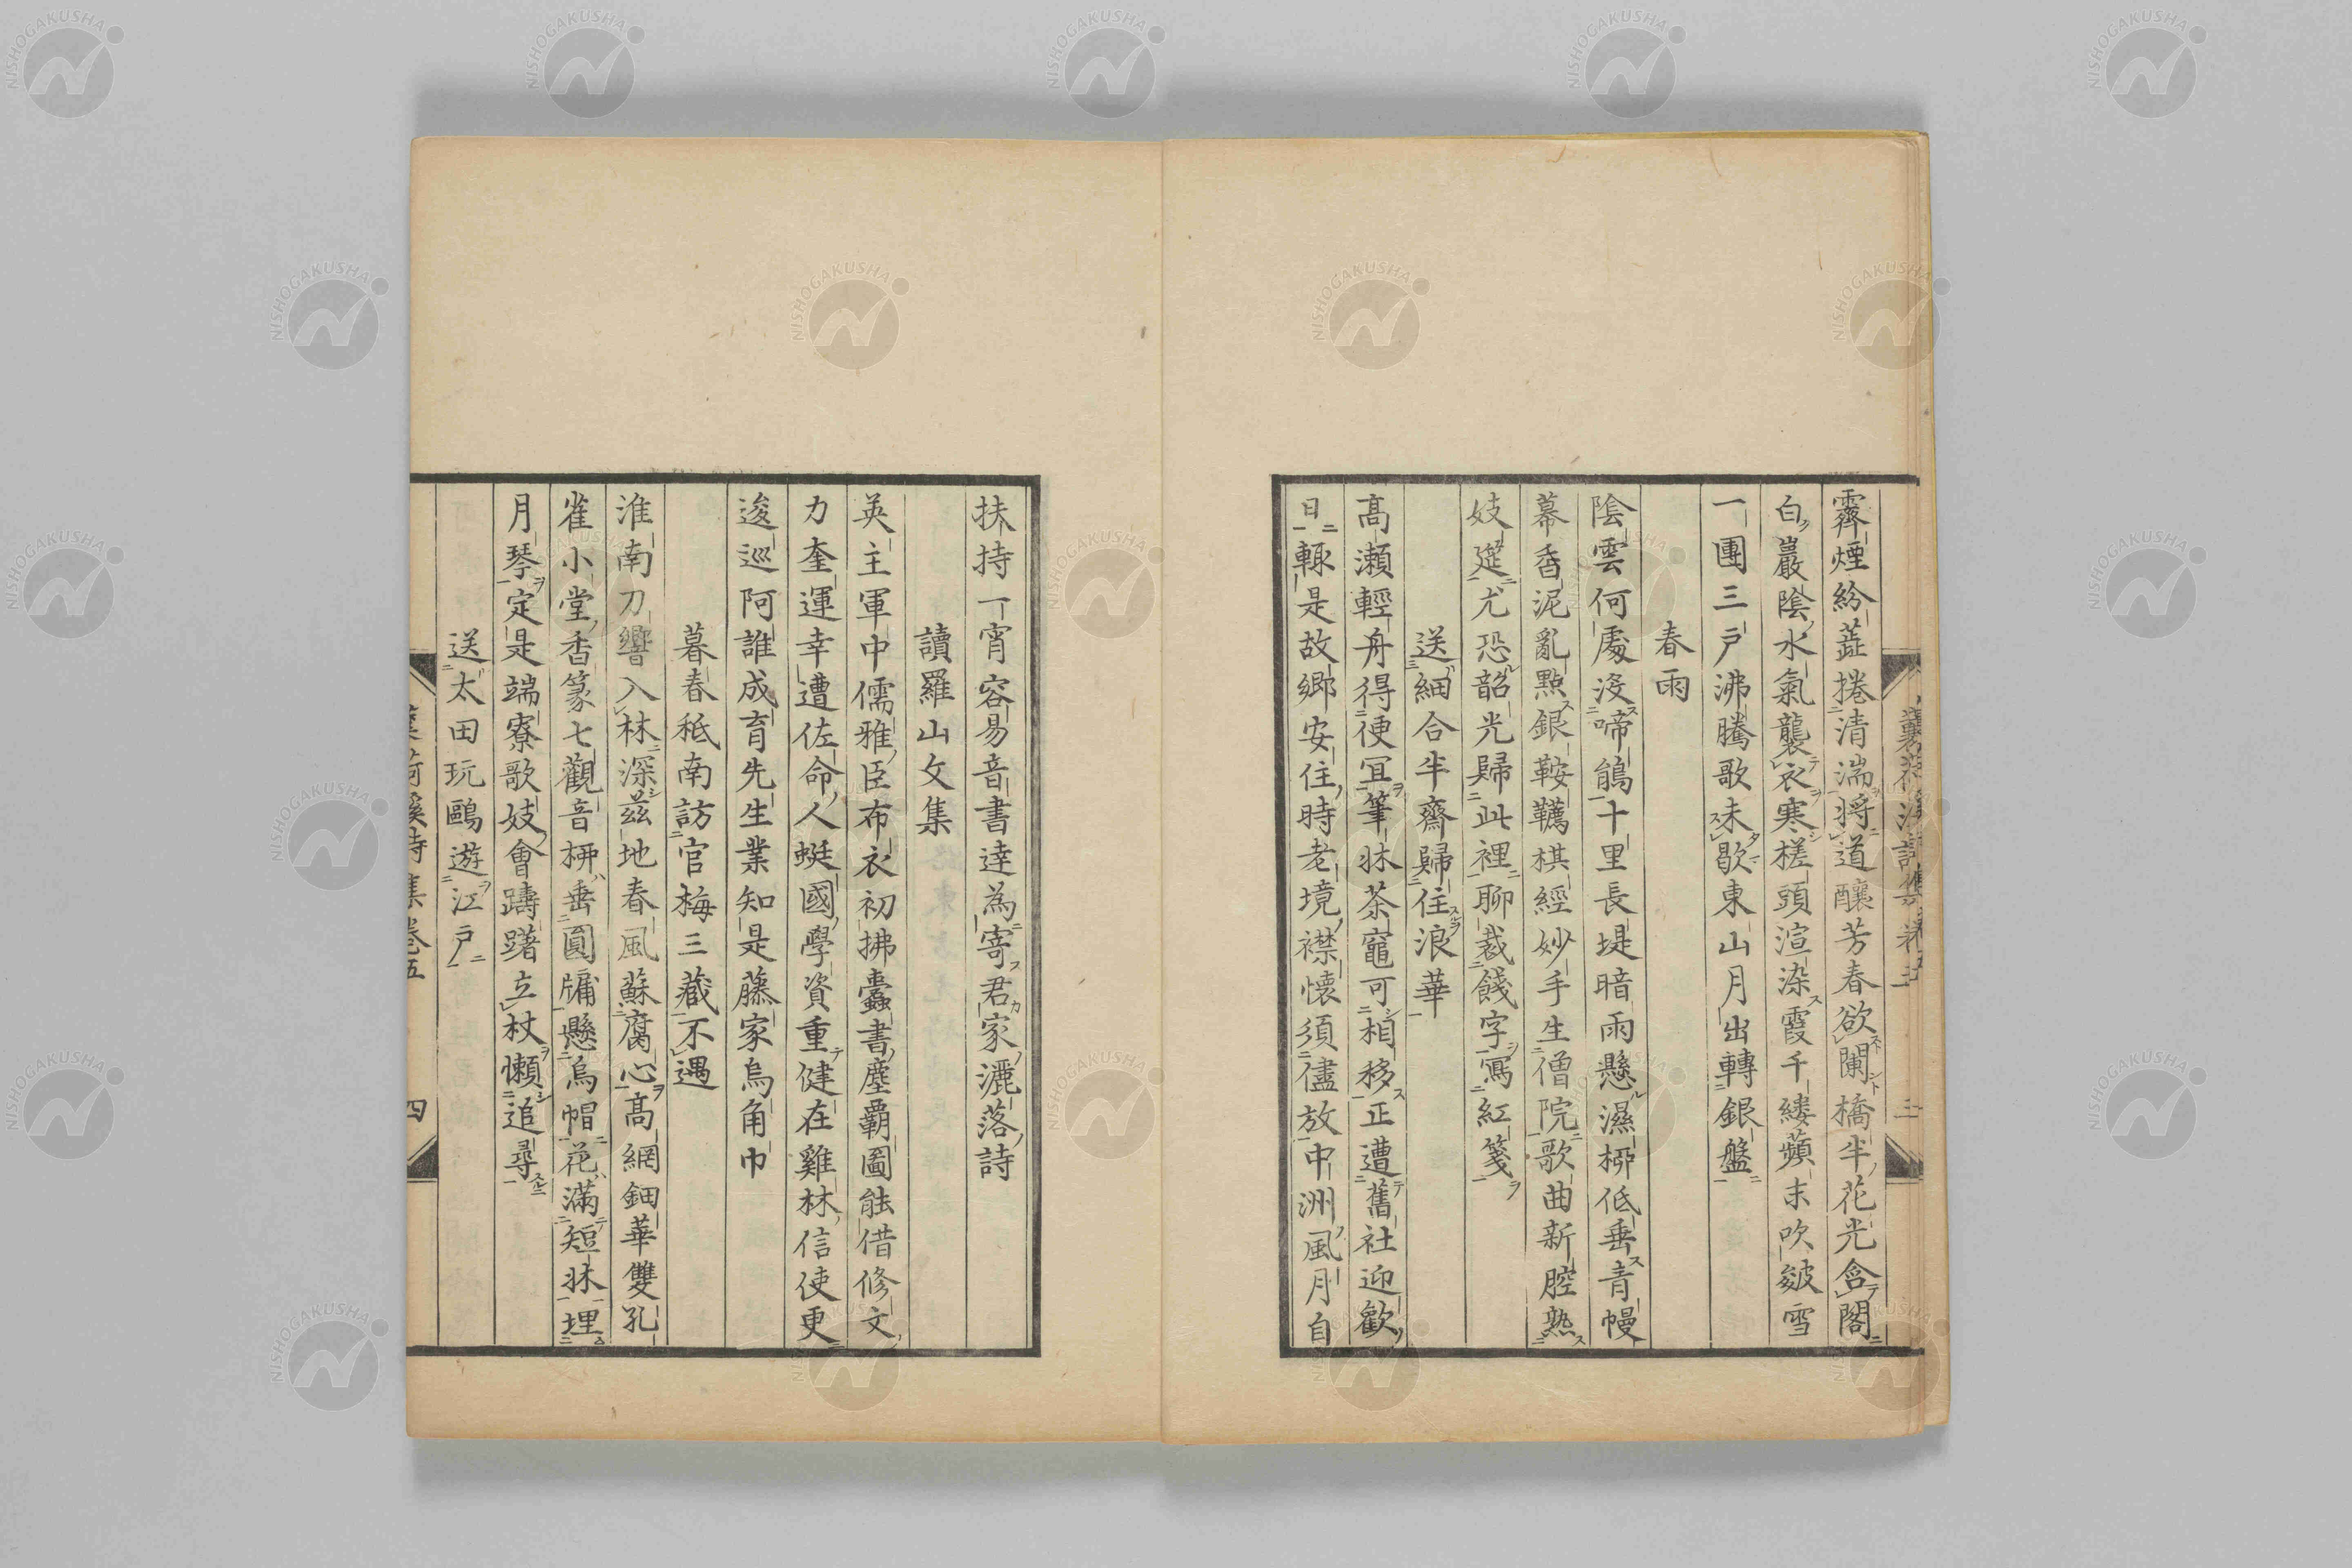 霽煙紛䔖捲清湍將道釀芳春欲闌橋半花光含閣
白巖陰水氣襲衣寒槎頭渲染霞千縷蘋末吹皴雪
一團三戶沸騰歌未歇東山月出轉銀盤
春雨
陰雲何處沒啼鵑十里長堤暗雨懸濕柳低垂青幔
幕香泥亂點銀鞍韉棋經妙手生僧院歌曲新腔熟
妓筵尤恐韶光歸此裡聊裁餞字寫紅箋
送細合半齋歸住浪華
高瀨輕舟得便冝筆牀茶竈可相移正遭舊社迎歡
日輙是故鄉安住時老境襟懷須儘放中洲風月自
扶持一宵容易音書達為寄君家灑落詩
讀羅山文集
英主軍中儒雅臣布衣初拂蠹書塵覇圖能借修文
力奎運幸遭佐命人蜓國學資重健在雞林信使更
逡巡阿誰成育先生業知是藤家烏角巾
暮春秪南訪官梅三藏不遇
淮南刀響入林深茲地春風蘇腐心高網鈿華雙孔
雀小堂香篆七觀音柳垂圓牖懸烏帽花滿短牀埋
月琴定是端寮歌妓會躊躇立杖懶追尋
送太田玩鷗遊江戶
襄荷溪詩集卷五
四